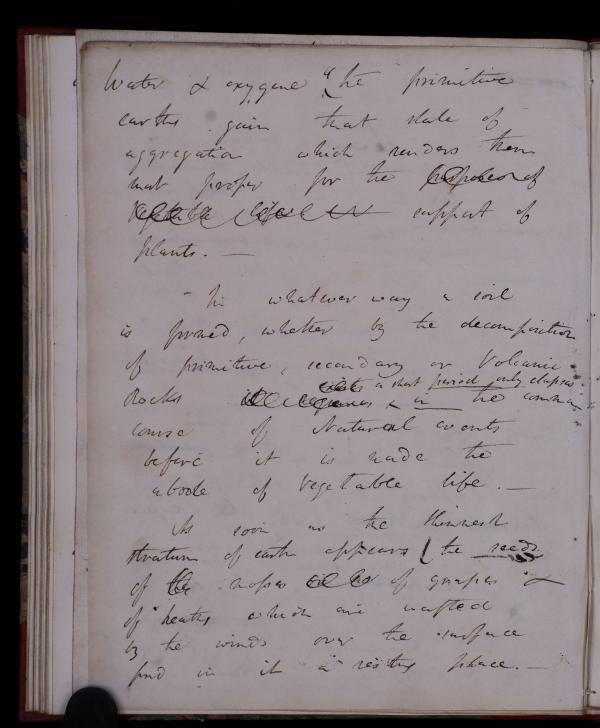 Water & oxygene "the primitive
earths gain that state of
aggregation which renders them
most proper for the purposes of
vegetable support of
plants. —
"In whatever way a soil
is formed, whether by the decomposition
of primitive, secondary or Volcanic
a short period only elapses
Rocks in the common
course of Natural events
before it is made the
abode of vegetable life. —
As soon as the thinnest
stratum of earth appears the seeds
of mosses of grasses &
of heaths which are wafted
by the winds over the surface
find in it a resting place. —